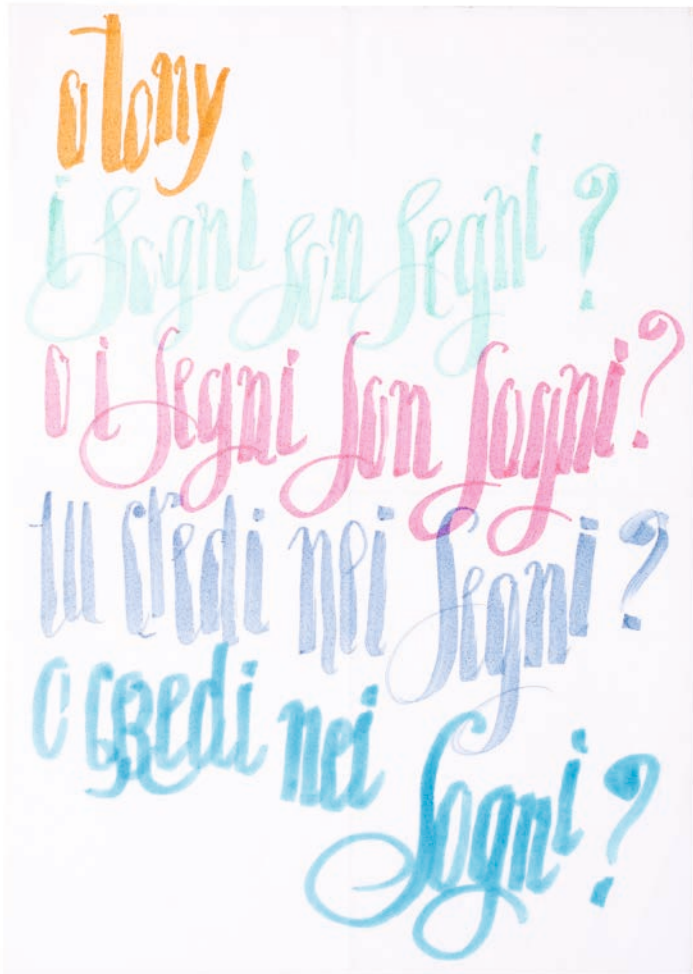 a tony
i sogni son segni?
o i segni son sogni?
tu credi nei segni?
o credi nei sogni?